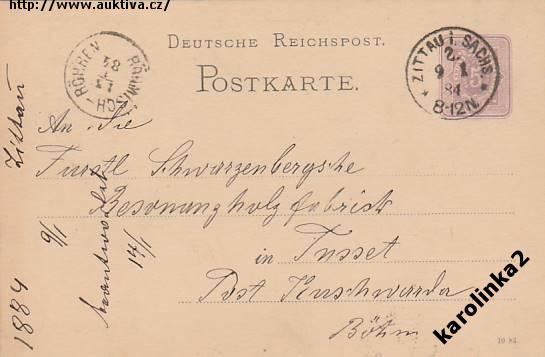 http://www.auktiva.cz/
DEUTSCHE REICHSPOST.
POSTKARTE.
ZITTAU i. SACHS.
9 1
84
8-12N.
RÖHREN
84
An Die
Fürstl Schwarzenbergsche
Resonanzholzfabrick
in Tusset
Post Kuschwarda
Böhm
1884 9/1 Zittau
beantwortet 14/1
karolinka2